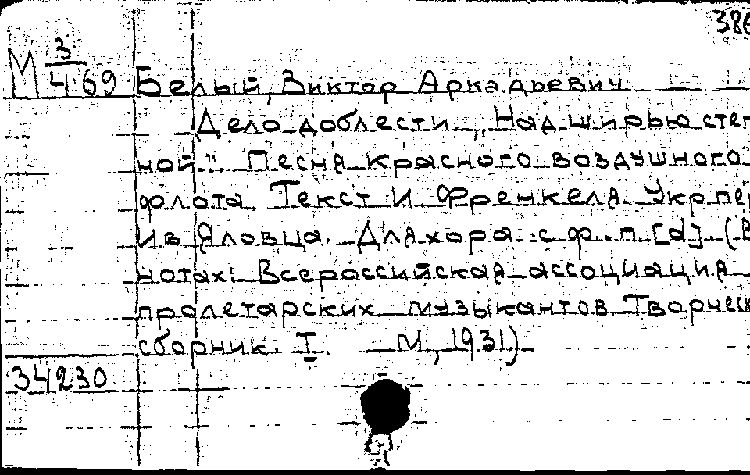 386
М 3/4-69 Белый, Виктор Аркадьевич
Дело доблести. „Над ширью степ
ной". Песня красного воздушного
флота. Текст И. Френкеля. Укр. пер
Ив. Яловца. Для хора с ф.-п. [d] (В
нотах: Всероссийская ассоциация
пролетарских музыкантов. Творческ
сборник. I. М., 1931)
34230